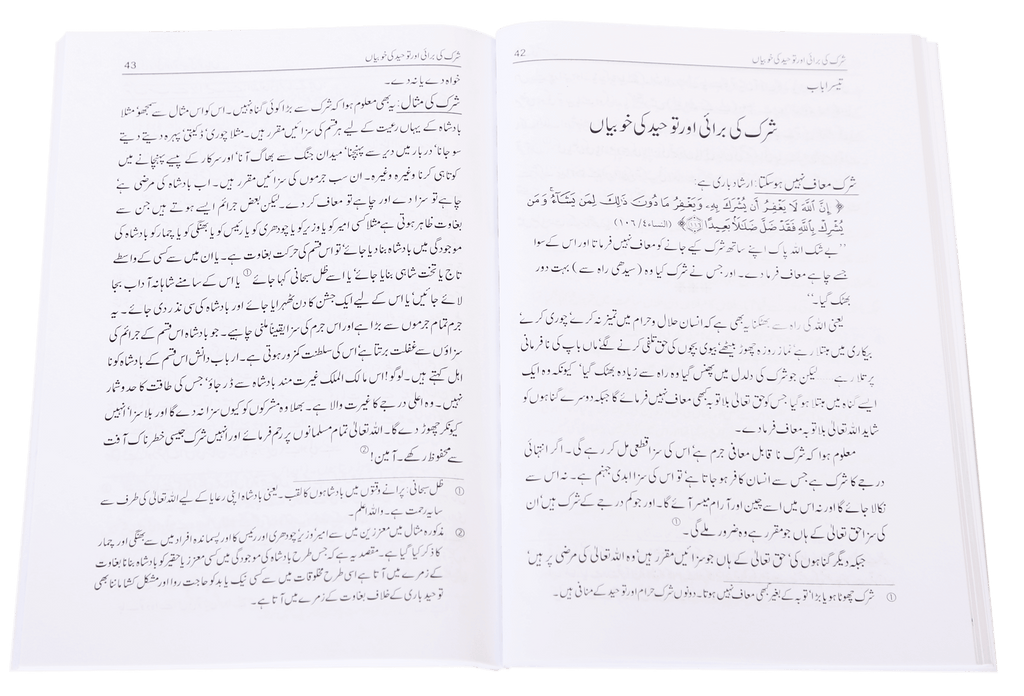 42
شرک کی برائی اور توحید کی خوبیاں
تیسرا باب
شرک کی برائی اور توحید کی خوبیاں
شرک معاف نہیں ہوسکتا: ارشاد باری ہے:
﴿ إِنَّ اللَّهَ لَا يَغْفِرُ أَن يُشْرَكَ بِهِ، وَيَغْفِرُ مَا دُونَ ذَٰلِكَ لِمَن يَشَاءُ وَمَن
يُشْرِكْ بِاللَّهِ فَقَدْ ضَلَّ ضَلَالًا بَعِيدًا ﴾ (النساء ٤/ ١٠٦)
"بے شک اللہ پاک اپنے ساتھ شرک کیے جانے کو معاف نہیں فرماتا اور اس کے سوا
جسے چاہے معاف فرما دے۔ اور جس نے شرک کیا وہ (سیدھی راہ سے) بہت دور
بھٹک گیا۔"
یعنی اللہ کی راہ سے بھٹکنا یہ بھی ہے کہ انسان حلال و حرام میں تمیز نہ کرے' چوری کرے'
بیکاری میں مبتلا رہے' نماز روزہ چھوڑ بیٹھے' بیوی بچوں کی حق تلفی کرنے لگے' ماں باپ کی نافرمانی
پر تلا رہے لیکن جو شرک کی دلدل میں پھنس گیا وہ راہ سے زیادہ بھٹک گیا' کیونکہ وہ ایک
ایسے گناہ میں مبتلا ہو گیا جس کو حق تعالیٰ بلا توبہ کبھی معاف نہیں فرمائے گا جبکہ دوسرے گناہوں کو
شاید اللہ تعالیٰ بلا توبہ معاف فرما دے۔
معلوم ہوا کہ شرک نا قابل معافی جرم ہے' اس کی سزا قطعی مل کر رہے گی۔ اگر انتہائی
درجے کا شرک ہے جس سے انسان کافر ہو جاتا ہے' تو اس کی سزا ابدی جہنم ہے۔ نہ اس سے
نکالا جائے گا اور نہ اس میں اسے چین اور آرام میسر آئے گا۔ اور جو کم درجے کے شرک ہیں' ان
کی سزا حق تعالیٰ کے ہاں جو مقرر ہے وہ ضرور ملے گی۔①
جبکہ دیگر گناہوں کی' حق تعالیٰ کے ہاں جو سزائیں مقرر ہیں' وہ اللہ تعالیٰ کی مرضی پر ہیں'
① شرک چھوٹا ہو یا بڑا' توبہ کے بغیر کبھی معاف نہیں ہوتا۔ دونوں شرک حرام اور توحید کے منافی ہیں۔
43
شرک کی برائی اور توحید کی خوبیاں
خواہ دے یا نہ دے۔
شرک کی مثال: یہ بھی معلوم ہوا کہ شرک سے بڑا کوئی گناہ نہیں۔ اس کو اس مثال سے سمجھو' مثلاً
بادشاہ کے یہاں رعیت کے لیے ہر قسم کی سزائیں مقرر ہیں۔ مثلاً چوری' ڈکیتی' پہرہ دیتے دیتے
سو جانا' دربار میں دیر سے پہنچنا' میدان جنگ سے بھاگ آنا' اور سرکار کے پیسے پہنچانے میں
کوتاہی کرنا وغیرہ وغیرہ۔ ان سب جرموں کی سزائیں مقرر ہیں۔ اب بادشاہ کی مرضی ہے
چاہے تو سزا دے اور چاہے تو معاف کر دے۔ لیکن بعض جرائم ایسے ہوتے ہیں جن سے
بغاوت ظاہر ہوتی ہے مثلاً کسی امیر کو یا وزیر کو یا چودھری کو یا رئیس کو یا بھنگی کو یا چمار کو بادشاہ کی
موجودگی میں بادشاہ بنا دیا جائے' تو اس قسم کی حرکت بغاوت ہے۔ یا ان میں سے کسی کے واسطے
تاج یا تخت شاہی بنایا جائے' یا اسے ظل سبحانی کہا جائے① یا اس کے سامنے شاہانہ آداب بجا
لائے جائیں' یا اس کے لیے ایک جشن کا دن ٹھہرایا جائے اور بادشاہ کی سی نذر دی جائے۔ یہ
جرم تمام جرموں سے بڑا ہے اور اس جرم کی سزا یقیناً ملنی چاہیے۔ جو بادشاہ اس قسم کے جرائم کی
سزاؤں سے غفلت برتتا ہے' اس کی سلطنت کمزور ہوتی ہے۔ ارباب دانش اس قسم کے بادشاہ کو نا
اہل کہتے ہیں۔ لوگو! اس مالک الملک غیرت مند بادشاہ سے ڈر جاؤ' جس کی طاقت کا حد و شمار
نہیں۔ وہ اعلیٰ درجے کا غیرت والا ہے۔ بھلا وہ مشرکوں کو کیوں سزا نہ دے گا اور بلا سزا' انہیں
کیونکر چھوڑ دے گا۔ اللہ تعالیٰ تمام مسلمانوں پر رحم فرمائے اور انہیں شرک جیسی خطرناک آفت
سے محفوظ رکھے۔ آمین!②
① ظل سبحانی: پرانے وقتوں میں بادشاہوں کا لقب۔ یعنی بادشاہ اپنی رعایا کے لیے اللہ تعالیٰ کی طرف سے
سایہ رحمت ہے۔ واللہ اعلم۔
② مذکورہ مثال میں معززین میں سے امیر' وزیر' چودھری اور رئیس کا اور پسماندہ افراد میں سے بھنگی اور چمار
کا ذکر کیا گیا ہے۔ مقصد یہ ہے کہ جس طرح بادشاہ کی موجودگی میں کسی معزز یا حقیر کو بادشاہ بنانا بغاوت
کے زمرے میں آتا ہے اسی طرح مخلوقات میں سے کسی نیک یا بد کو حاجت روا اور مشکل کشا ماننا بھی
توحید باری کے خلاف بغاوت کے زمرے میں آتا ہے۔